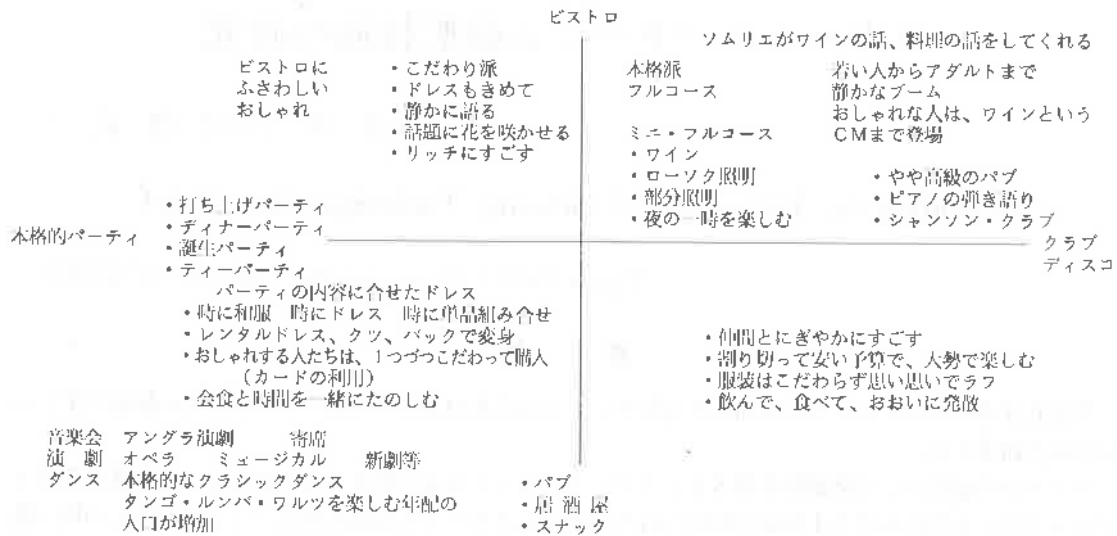 ビストロ
ソムリエがワインの話、料理の話をしてくれる
ビストロに
ふさわしい
おしゃれ
・こだわり派
・ドレスもきめて
・静かに語る
・話題に花を咲かせる
・リッチにすごす
本格派
フルコース
ミニ・フルコース
・ワイン
・ローソク照明
・部分照明
・夜の一時を楽しむ
若い人からアダルトまで
静かなブーム
おしゃれな人は、ワインという
CMまで登場
・やや高級のパブ
・ピアノの弾き語り
・シャンソン・クラブ
本格的パーティ
・打ち上げパーティ
・ディナーパーティ
・誕生パーティ
・ティーパーティ
パーティの内容に合せたドレス
・時に和服 時にドレス 時に単品組み合せ
・レンタルドレス、クツ、バックで変身
・おしゃれする人たちは、1つづつこだわって購入
(カードの利用)
・会食と時間を一緒にたのしむ
クラブ
ディスコ
・仲間とにぎやかにすごす
・割り切って安い予算で、大勢で楽しむ
・服装はこだわらず思い思いでラフ
・飲んで、食べて、おおいに発散
音楽会 アングラ演劇 寄席
演 劇 オペラ ミュージカル 新劇等
ダンス 本格的なクラシックダンス
タンゴ・ルンバ・ワルツを楽しむ年配の
人口が増加
・パブ
・居 酒 屋
・スナック